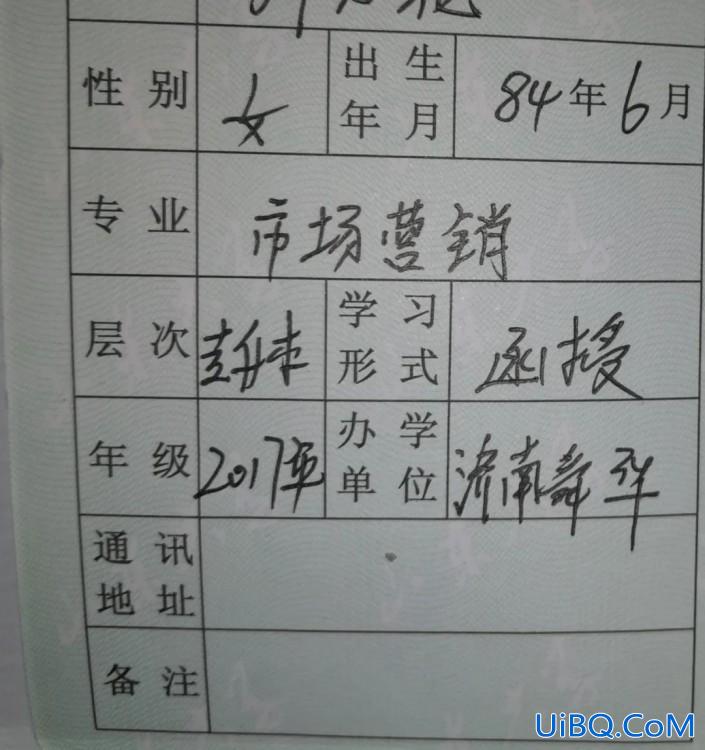 性别 女 出生年月 84年6月
专业 市场营销
层次 专升本 学习形式 函授
年级 2017年 办学单位 济南舜华
通讯地址
备注
UiBQ.CoM